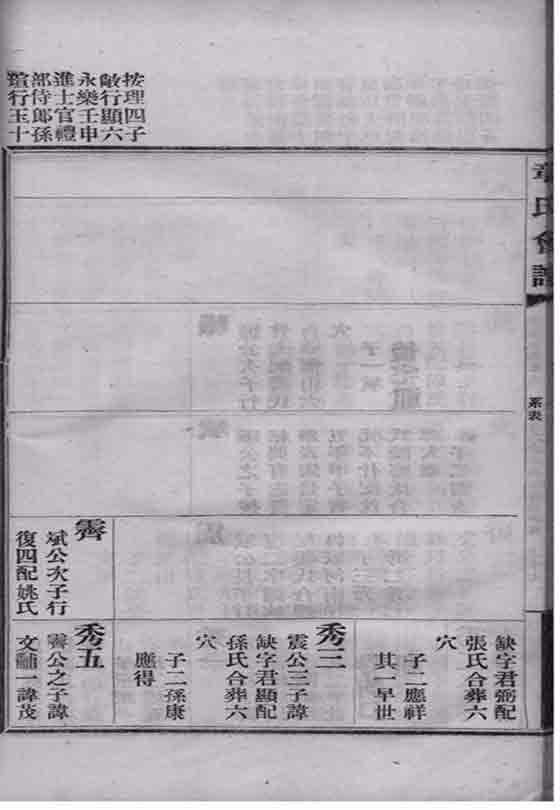 章氏會譜
系表
按理四子
敵行顯六
永樂壬申
進士官禮
部侍郎孫
瑄行玉十
霽
斌公次子行
復四配姚氏
缺字君弼配
張氏合葬六
穴
子二應祥
其一早世
秀三
震公三子諱
缺字君顯配
孫氏合葬六
穴
子二孫康
應得
秀五
霽公之子諱
文黼一諱茂